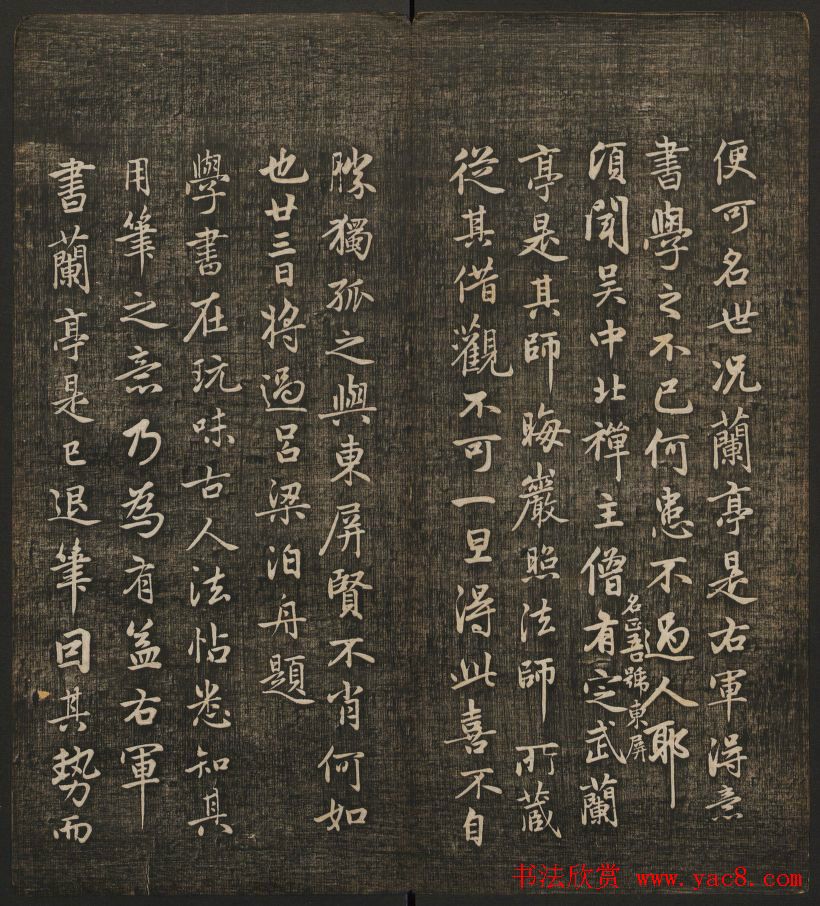 便可名世况蘭亭是右軍得意
書學之不已何患不過人耶
頃聞吴中北禪主僧有定武蘭
名正吾號東屏
亭是其師晦巖照法師所蔵
從其借觀不可一旦得此喜不自
勝獨孤之與東屏賢不肖何如
也廿三日將過呂梁泊舟題
學書在玩味古人法帖悉知其
用筆之意乃為有益右軍
書蘭亭是已退筆回其勢而
书法欣赏 www.yac8.com